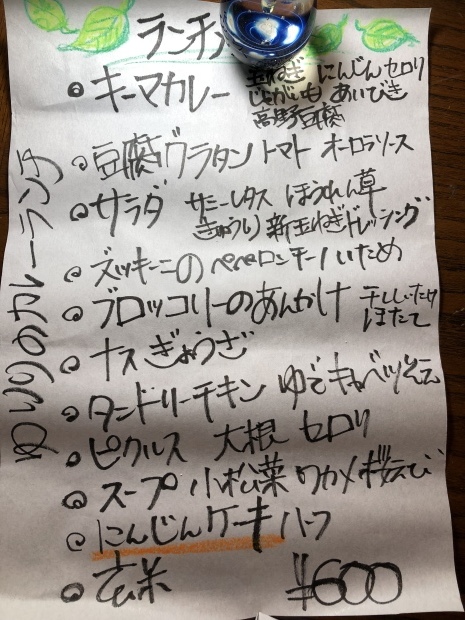 ランチ
キーマカレー 玉ねぎ にんじん セロリ
じゃがいも あいびき
高野豆腐
豆腐グラタン トマト オーロラソース
サラダ サニーレタス ほうれん草
きゅうり 新玉ねぎドレッシング
ズッキーニのペペロンチーノいため
ブロッコリーのあんかけ 干ししいたけ
ほたて
ナスぎょうざ
タンドリーチキン ゆでキャベツ
ピクルス 大根 セロリ
スープ 小松菜 ワカメ 桜えび
にんじんケーキ ハーフ
玄米 ¥600
ゆりりのカレーランチ